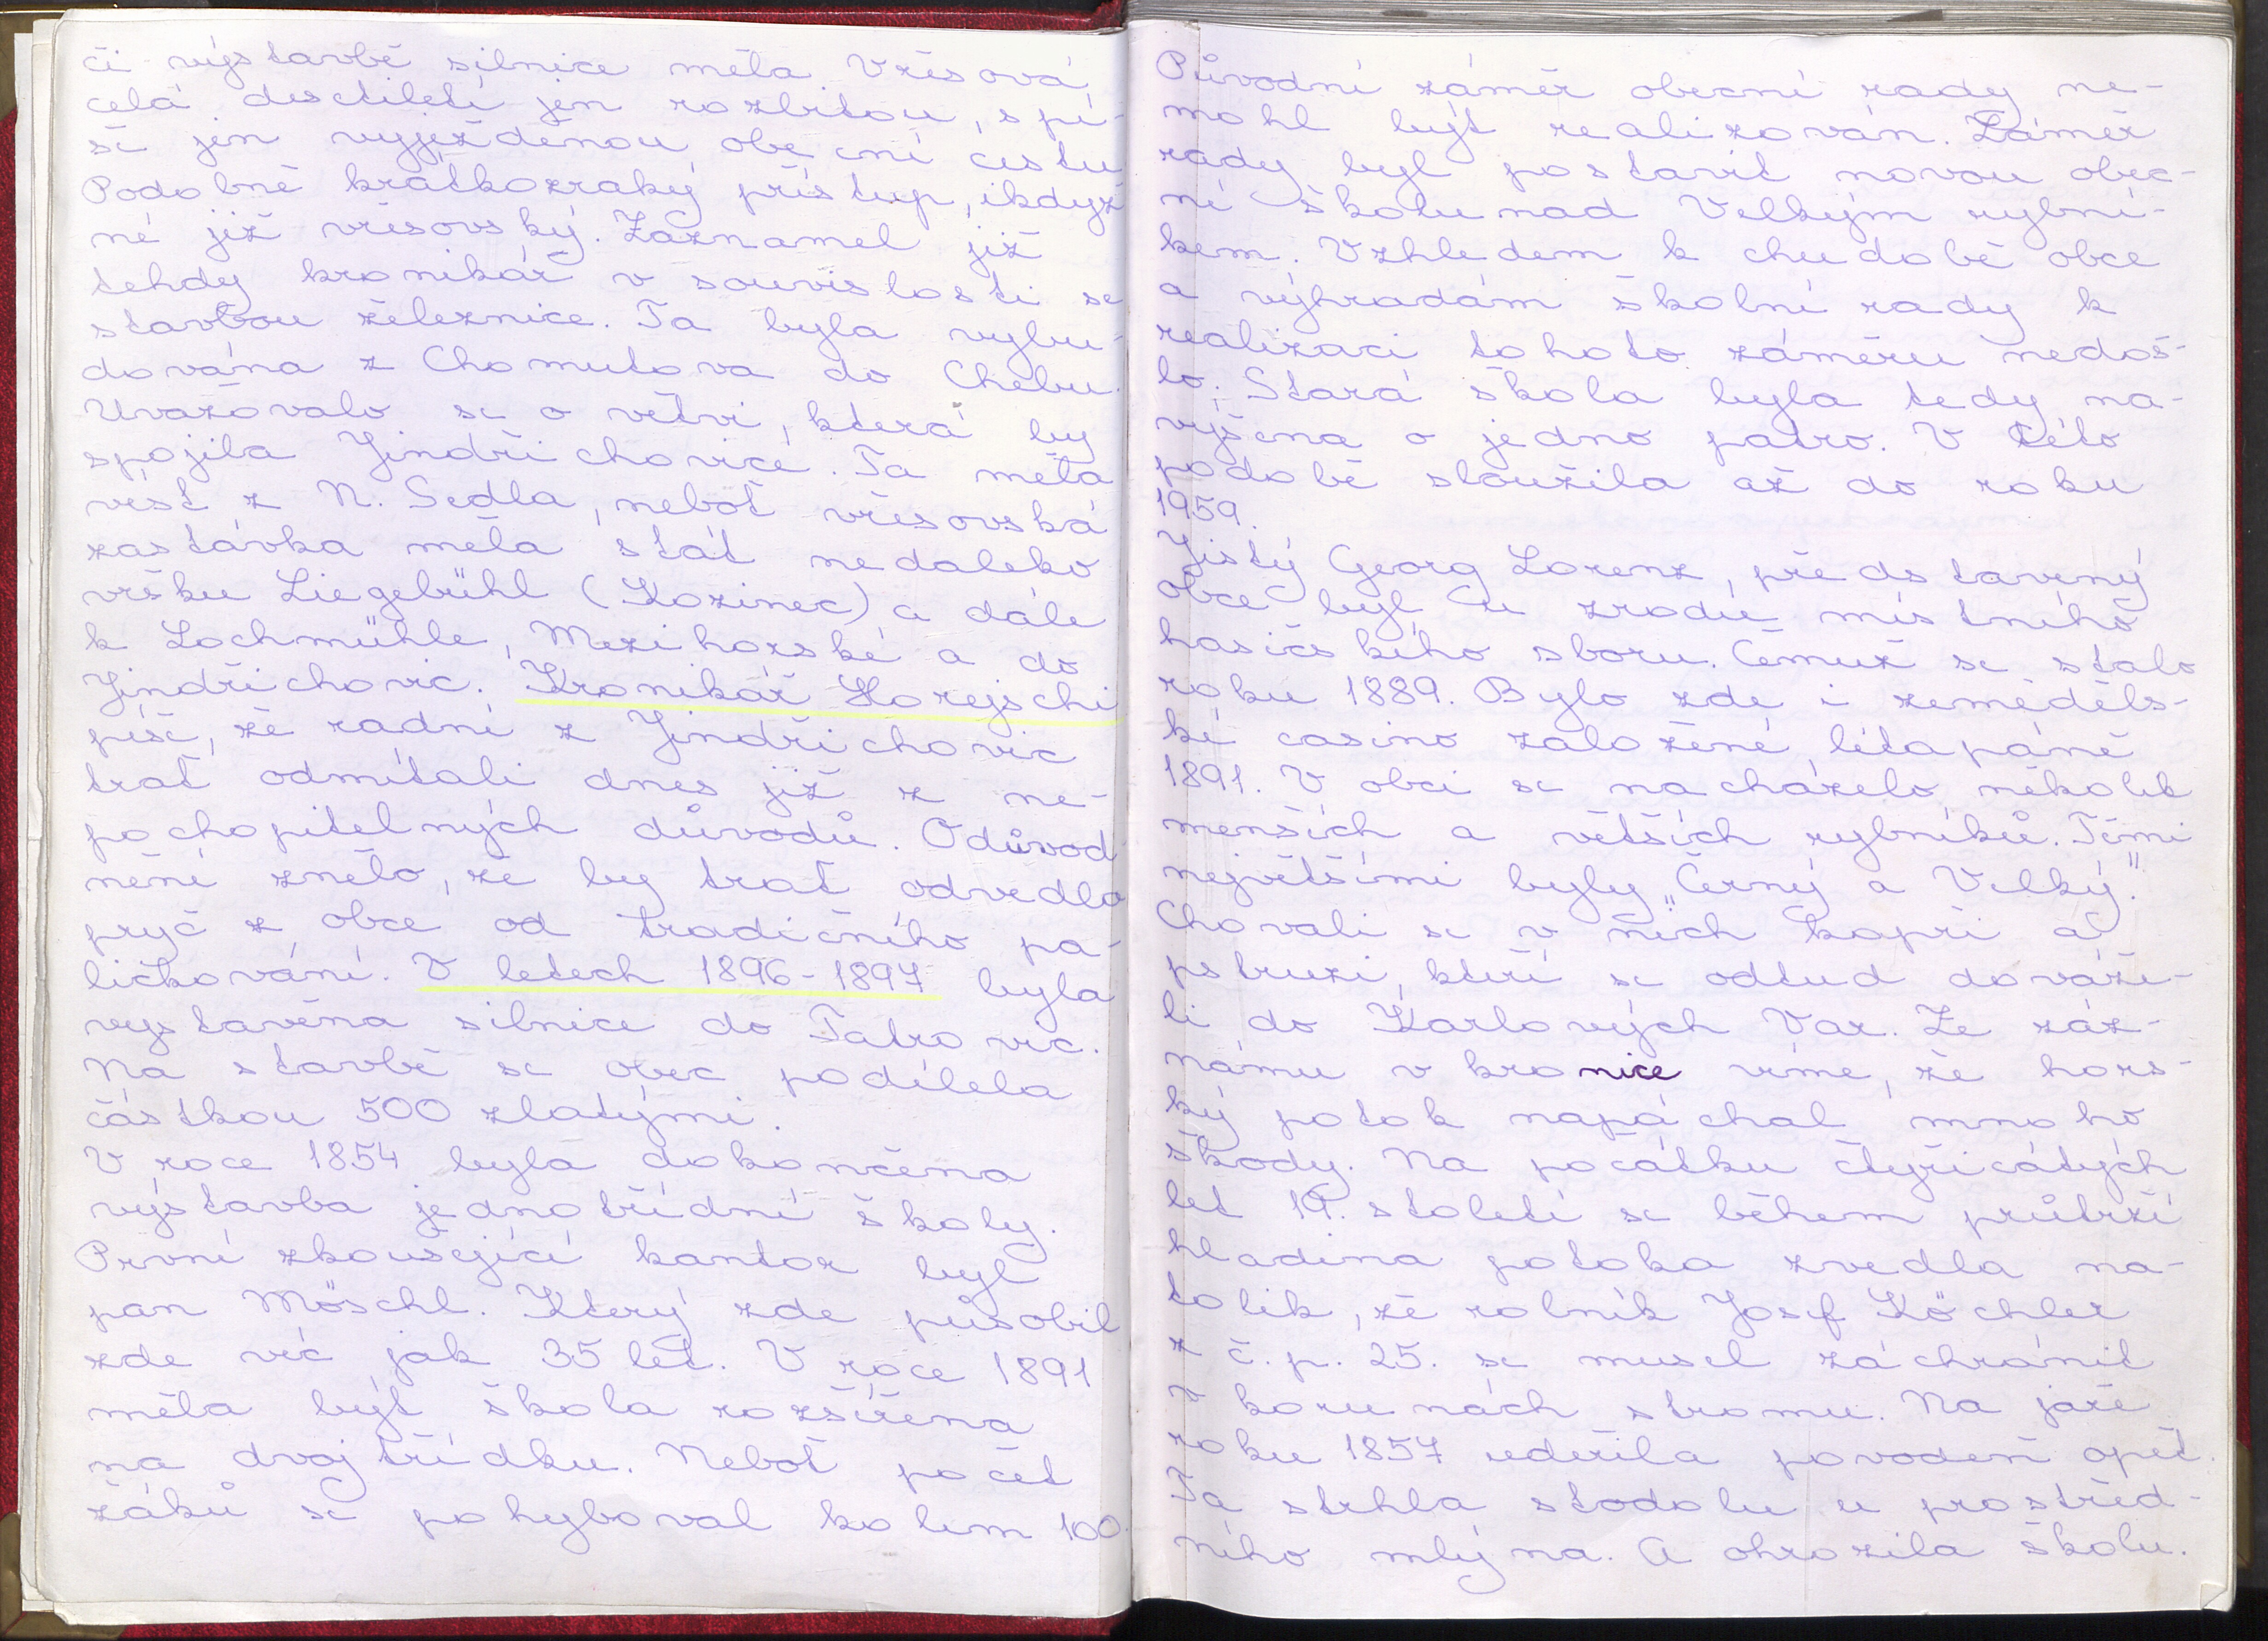 či výstavbě silnice měla Vřesová
celá desetiletí jen rozbitou, spí-
še jen vyježděnou obecní cestu
Podobně krátkozraký přístup, ikdyž
ne již vřesovský. Zaznamel již
tehdy kronikář v souvislosti se
stavbou železnice. Ta byla vybu-
dována z Chomutova do Chebu.
Uvažovalo se o větvi, která by
spojila Jindřichovice. Ta měla
vést z N. Sedla, neboť vřesovská
zastávka měla stát nedaleko
vršku Liegebühl (Kozinec) a dále
k Lochmühle, Mezihorské a do
Jindřichovic. Kronikář Horejschi
píše, že radní z Jindřichovic
trať odmítali dnes již z ne-
pochopitelných důvodů. Odůvod
nění znělo, že by trať odvedla
pryč z obce od tradičního pa-
ličkování. V letech 1896-1897 byla
vystavěna silnice do Tatrovic.
Na stavbě se obec podílela
částkou 500 zlatými.
V roce 1854 byla dokončena
výstavba jednotřídní školy.
První zkoušející kantor byl
pan Möschl. Který zde působil
zde víc jak 35 let. V roce 1891
měla být škola rozšířena
na dvojtřídku. Neboť počet
žáků se pohyboval kolem 100.
Původní záměr obecní rady ne-
mohl být realizován. Záměr
rady byl postavit novou obec-
ní školu nad Velkým rybní-
kem. Vzhledem k chudobě obce
a výhradám školní rady k
realizaci tohoto záměru nedoš-
lo. Stará škola byla tedy na-
výšena o jedno patro. V této
podobě sloužila až do roku
1959.
Jistý Georg Lorenz, představený
obce byl u zrodu místního
hasičského sboru. Čemuž se stalo
roku 1889. Bylo zde i zeměděls-
ké casino založené, léta páně
1891. V obci se nacházelo několik
menších a větších rybníků. Těmi
největšími byly „Černý a Velký."
Chovali se v nich kapři a
pstruzi, kteří se odtud dováže-
li do Karlových Var. Ze záz-
námu v kronice víme, že hors-
ký potok napáchal mnoho
škody. Na počátku čtyřicátých
let 19. století se během průtrží
hladina potoka zvedla na-
tolik, že rolník Josef Köchler
z č.p. 25. se musel zachránit
v korunách stromu. Na jaře
roku 1857 udeřila povodeň opět.
Ta strhla stodolu u prostřed-
ního mlýna. A ohrozila školu.